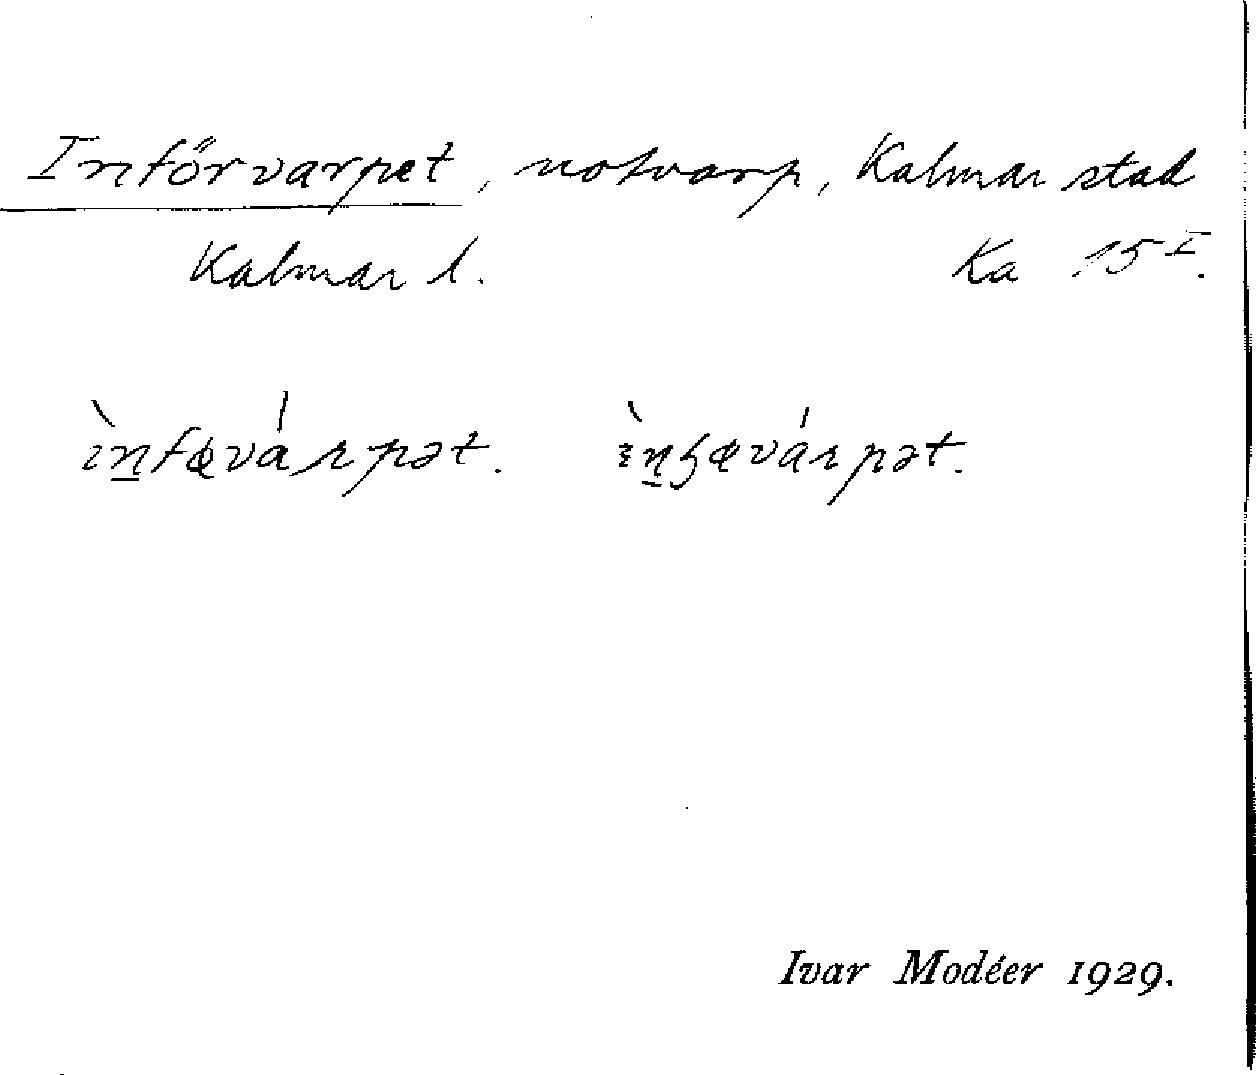 Införvarpet, notvarp, Kalmar stad
Kalmar l. Ka 15ᴵ.
ìnfœvárpət. ìnhœvárpət.
Ivar Modéer 1929.